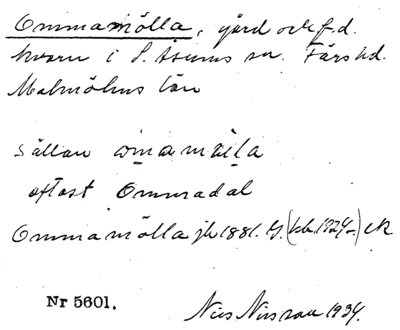 Ommamölla, gård och f.d.
kvarn i S. Åsums sn. Färs hd.
Malmöhus län
Sällan
oftast Ommadal
Ommamölla jb 1881. G.
Nr 5601.
Nils Nilsson 1934.